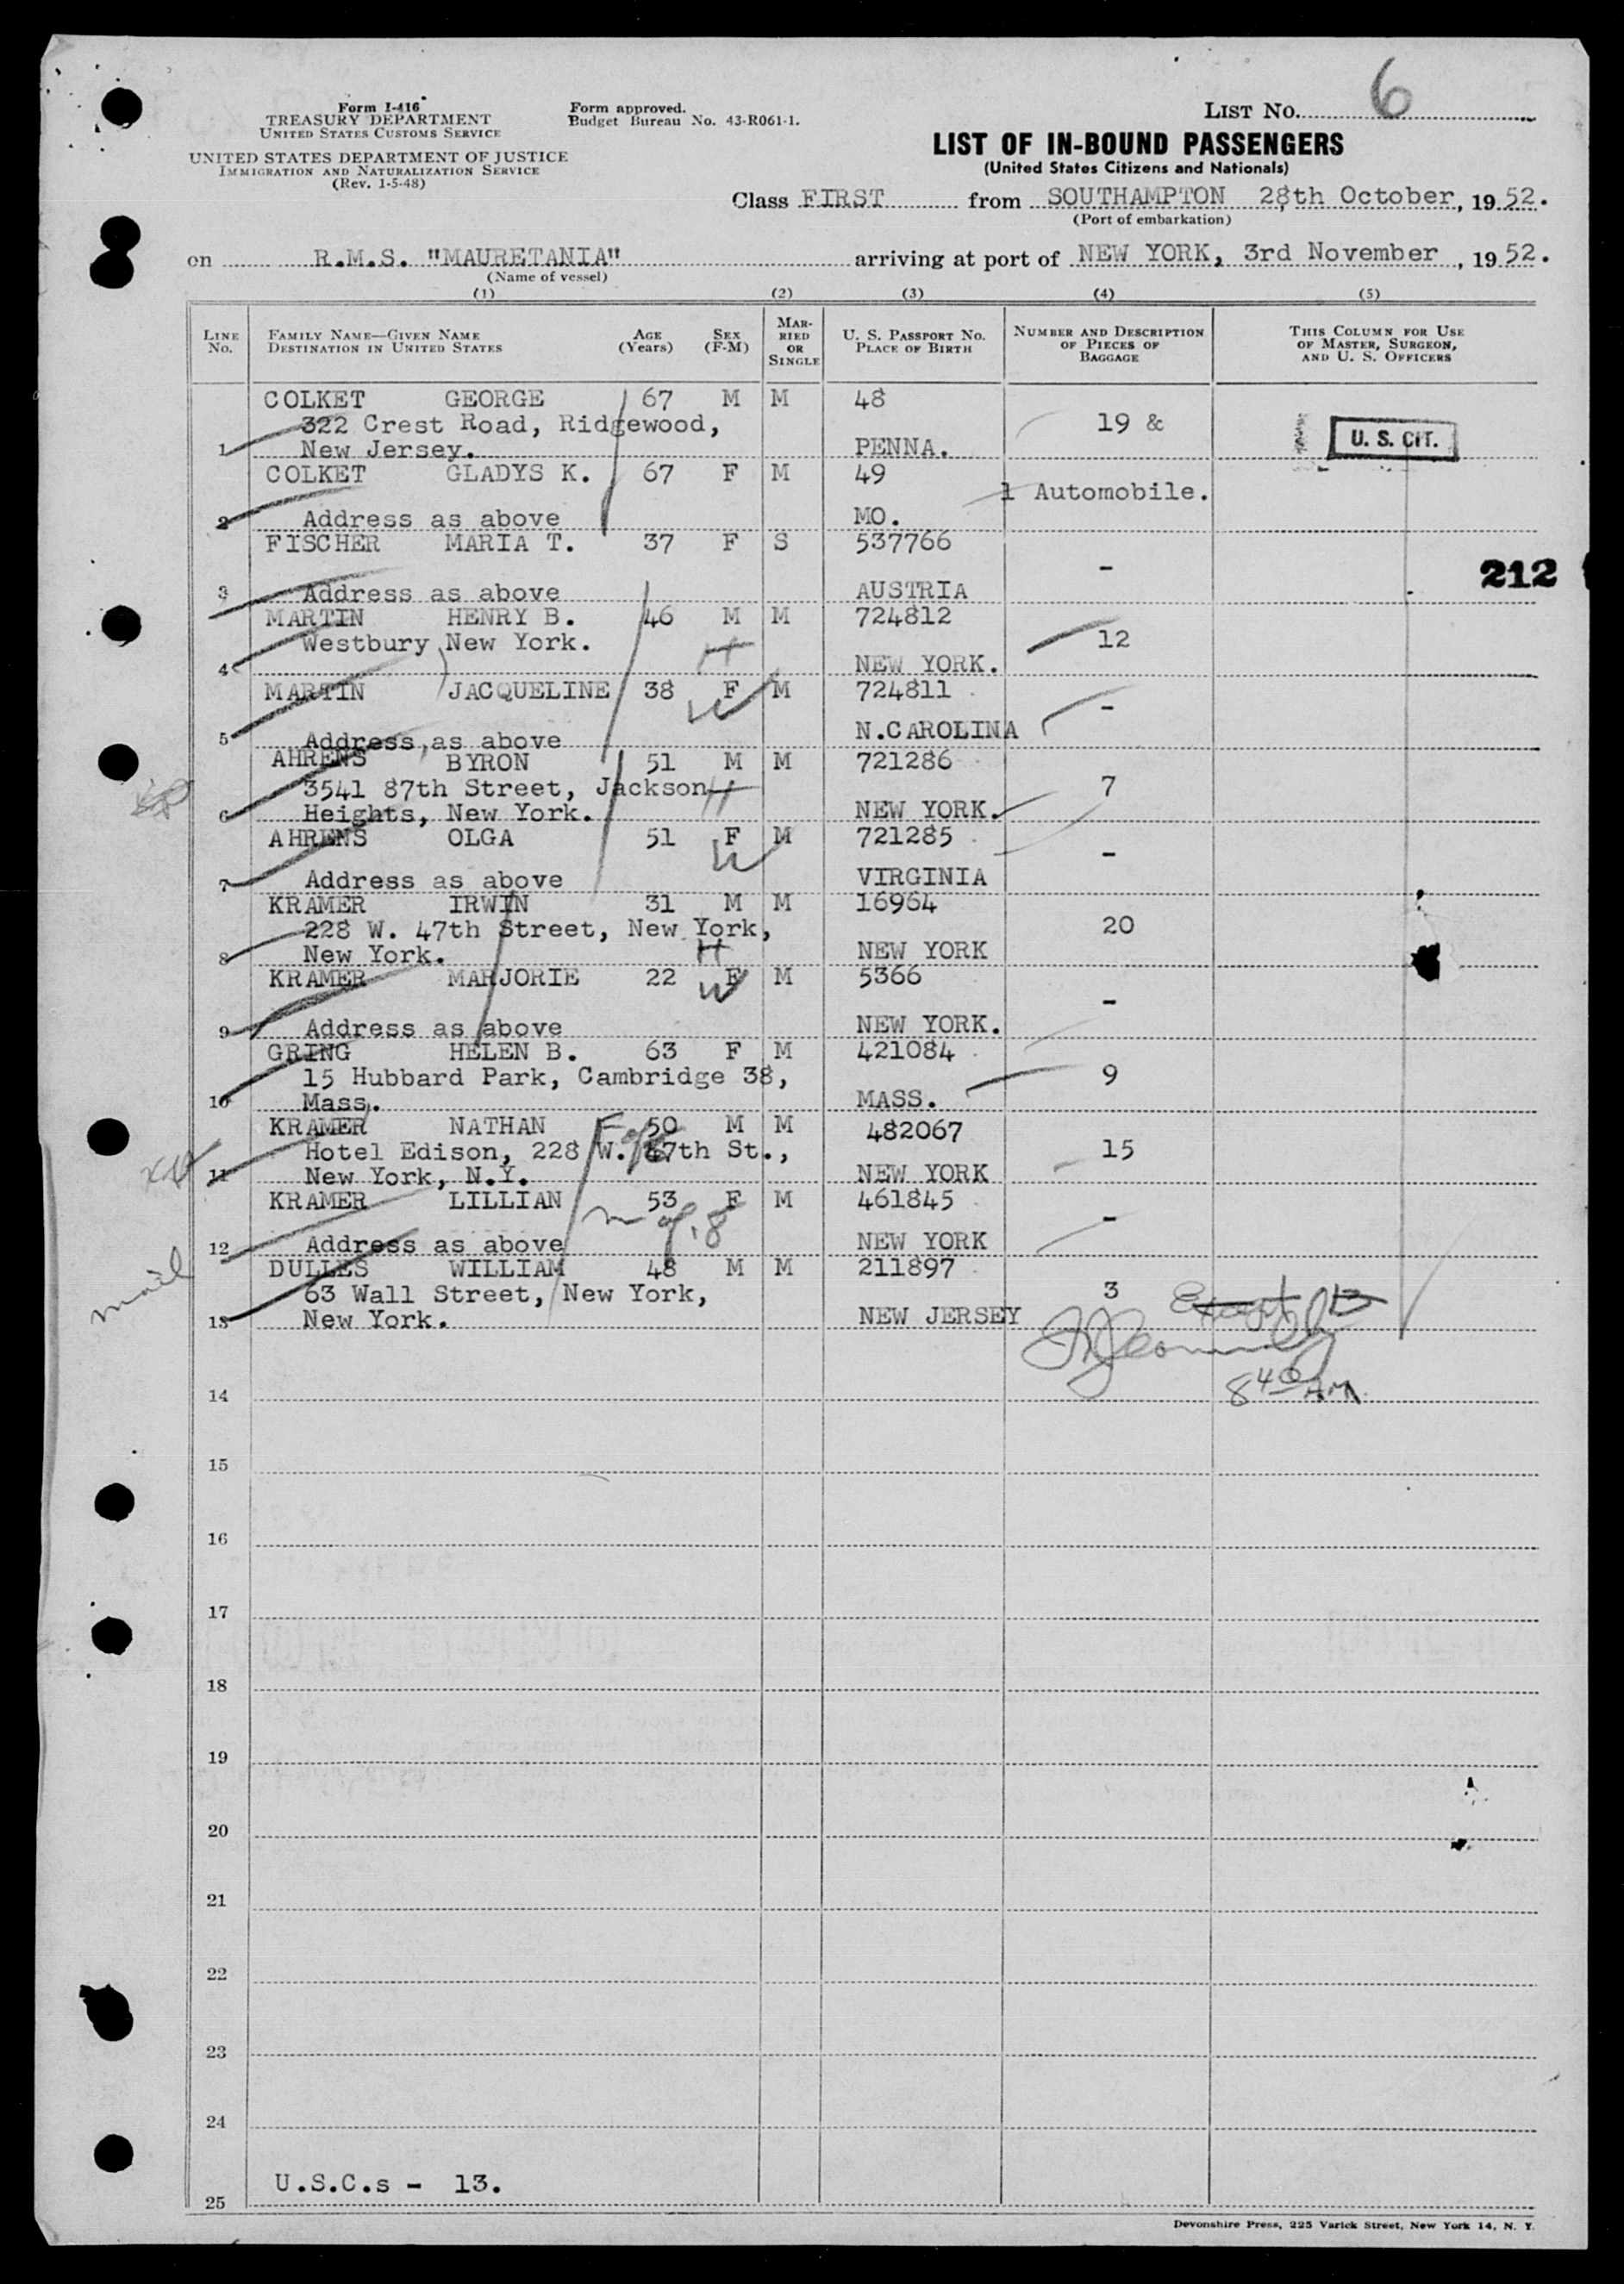 Form I-416
TREASURY DEPARTMENT
UNITED STATES CUSTOMS SERVICE
UNITED STATES DEPARTMENT OF JUSTICE
IMMIGRATION AND NATURALIZATION SERVICE
(Rev. 1-5-48)
Form approved.
Budget Bureau No. 43-R061-1.
LIST NO. 6
LIST OF IN-BOUND PASSENGERS
(United States Citizens and Nationals)
Class FIRST from SOUTHAMPTON 28th October, 1952.
(Port of embarkation)
on R.M.S. "MAURETANIA" arriving at port of NEW YORK, 3rd November, 1952.
(Name of vessel)
(1) (2) (3) (4) (5)
LINE No. FAMILY NAME—GIVEN NAME DESTINATION IN UNITED STATES AGE (Years) SEX (F-M) MARRIED OR SINGLE U. S. PASSPORT NO. PLACE OF BIRTH NUMBER AND DESCRIPTION OF PIECES OF BAGGAGE THIS COLUMN FOR USE OF MASTER, SURGEON, AND U. S. OFFICERS
COLKET GEORGE 67 M M 48
322 Crest Road, Ridgewood, 19 &
1 New Jersey. PENNA. U. S. CIT.
COLKET GLADYS K. 67 F M 49
1 Automobile.
2 Address as above MO.
FISCHER MARIA T. 37 F S 537766
- 212
3 Address as above AUSTRIA
MARTIN HENRY B. 46 M M 724812
Westbury New York. H 12
4 NEW YORK.
MARTIN JACQUELINE 38 F M 724811
W -
5 Address as above N.CAROLINA
AHRENS BYRON 51 M M 721286
3541 87th Street, Jackson H 7
6 Heights, New York. NEW YORK.
AHRENS OLGA 51 F M 721285
W -
7 Address as above VIRGINIA
KRAMER IRWIN 31 M M 16964
228 W. 47th Street, New York, 20
8 New York. H NEW YORK
KRAMER MARJORIE 22 F M 5366
W -
9 Address as above NEW YORK.
GRING HELEN B. 63 F M 421084
15 Hubbard Park, Cambridge 38, 9
10 Mass. MASS.
KRAMER NATHAN F 50 M M 482067
Hotel Edison, 228 W. 47th St., 15
11 New York, N.Y. NEW YORK
KRAMER LILLIAN 53 F M 461845
m of 8 -
12 Address as above NEW YORK
mail
DULLES WILLIAM 48 M M 211897
63 Wall Street, New York, 3 Except 13
13 New York. NEW JERSEY
8 40 AM
14
15
16
17
18
19
20
21
22
23
24
U.S.C.s - 13.
25
Devonshire Press, 225 Varick Street, New York 14, N. Y.